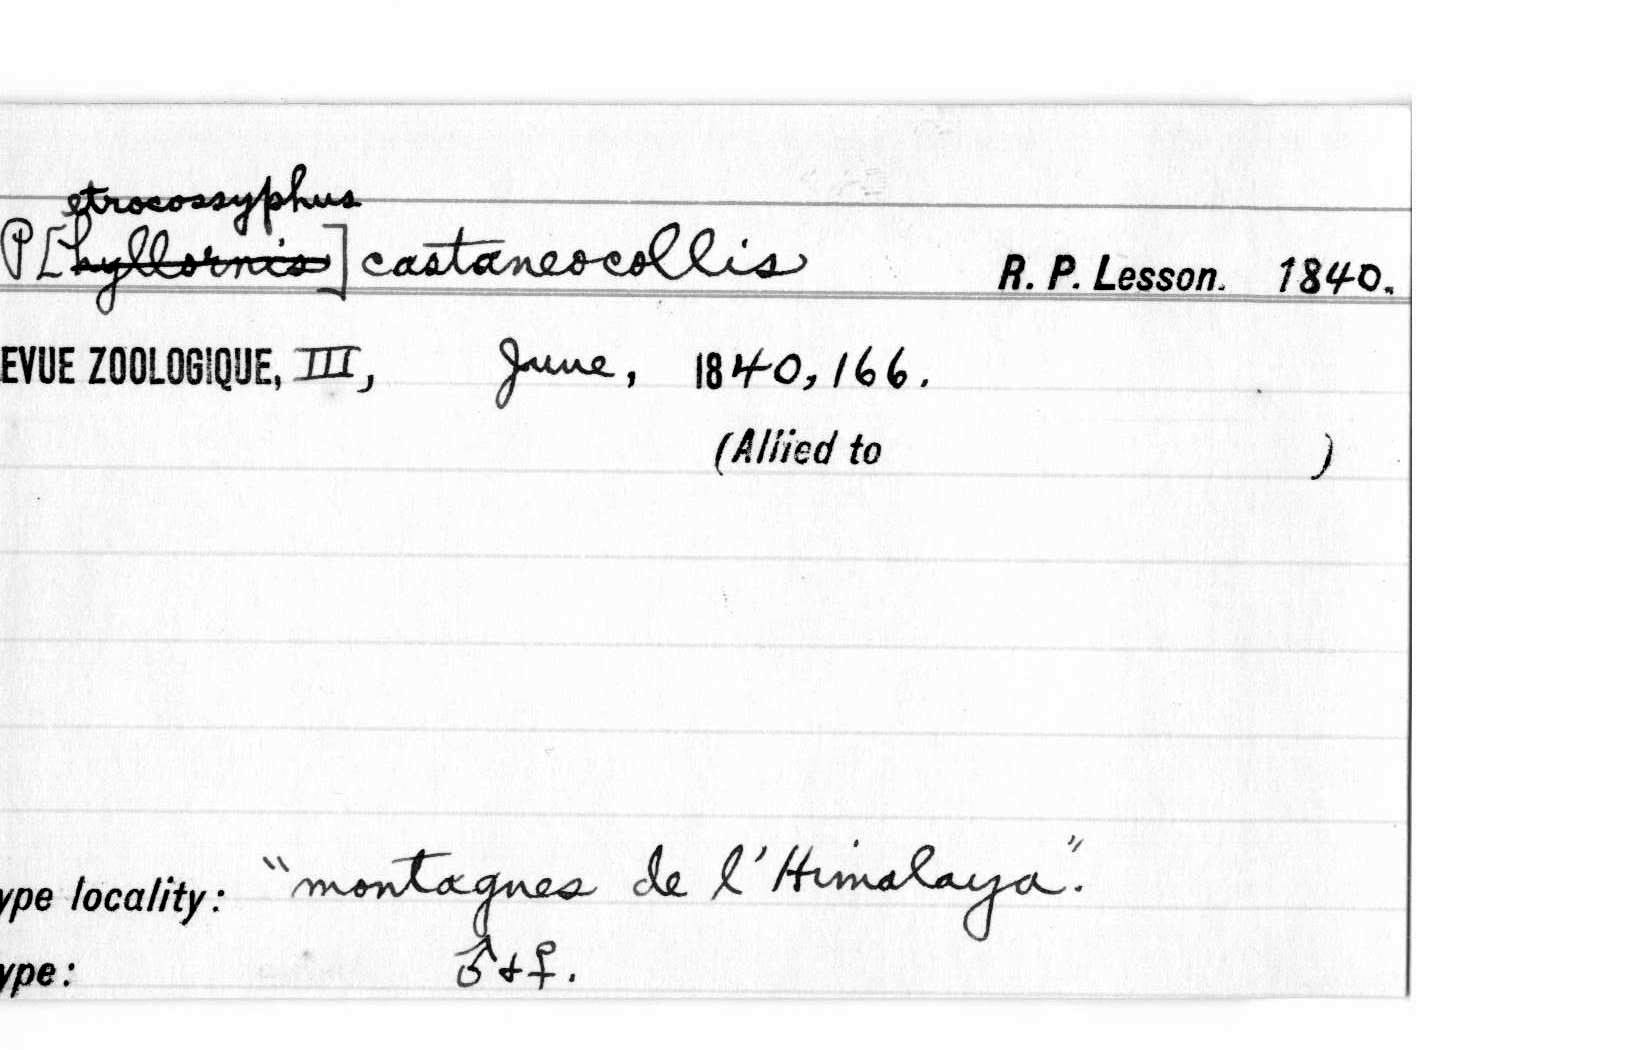 etrocossyphus
P[hyllornis] castaneocollis R. P. Lesson. 1840.
EVUE ZOOLOGIQUE, III, June, 1840, 166.
(Allied to )
ype locality: "montagnes de l'Himalaya".
ype: ♂ & ♀.